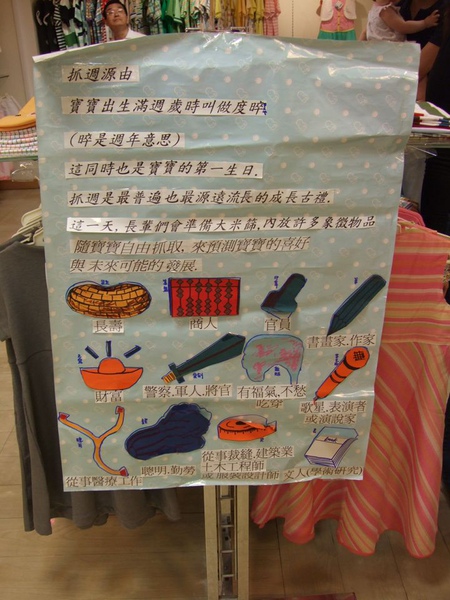 抓週源由
寶寶出生滿週歲時叫做度晬,
(晬是週年意思)
這同時也是寶寶的第一生日.
抓週是最普遍也最源遠流長的成長古禮.
這一天,長輩們會準備大米篩,內放許多象徵物品
隨寶寶自由抓取.來預測寶寶的喜好
與未來可能的發展.
長壽
商人
官員
書畫家.作家
財富
警察.軍人.將官
有福氣,不愁
吃穿
歌星.表演者
或演說家
從事醫療工作
聰明,勤勞
從事裁縫.建築業
土木工程師
或服裝設計師
文人(學術研究)